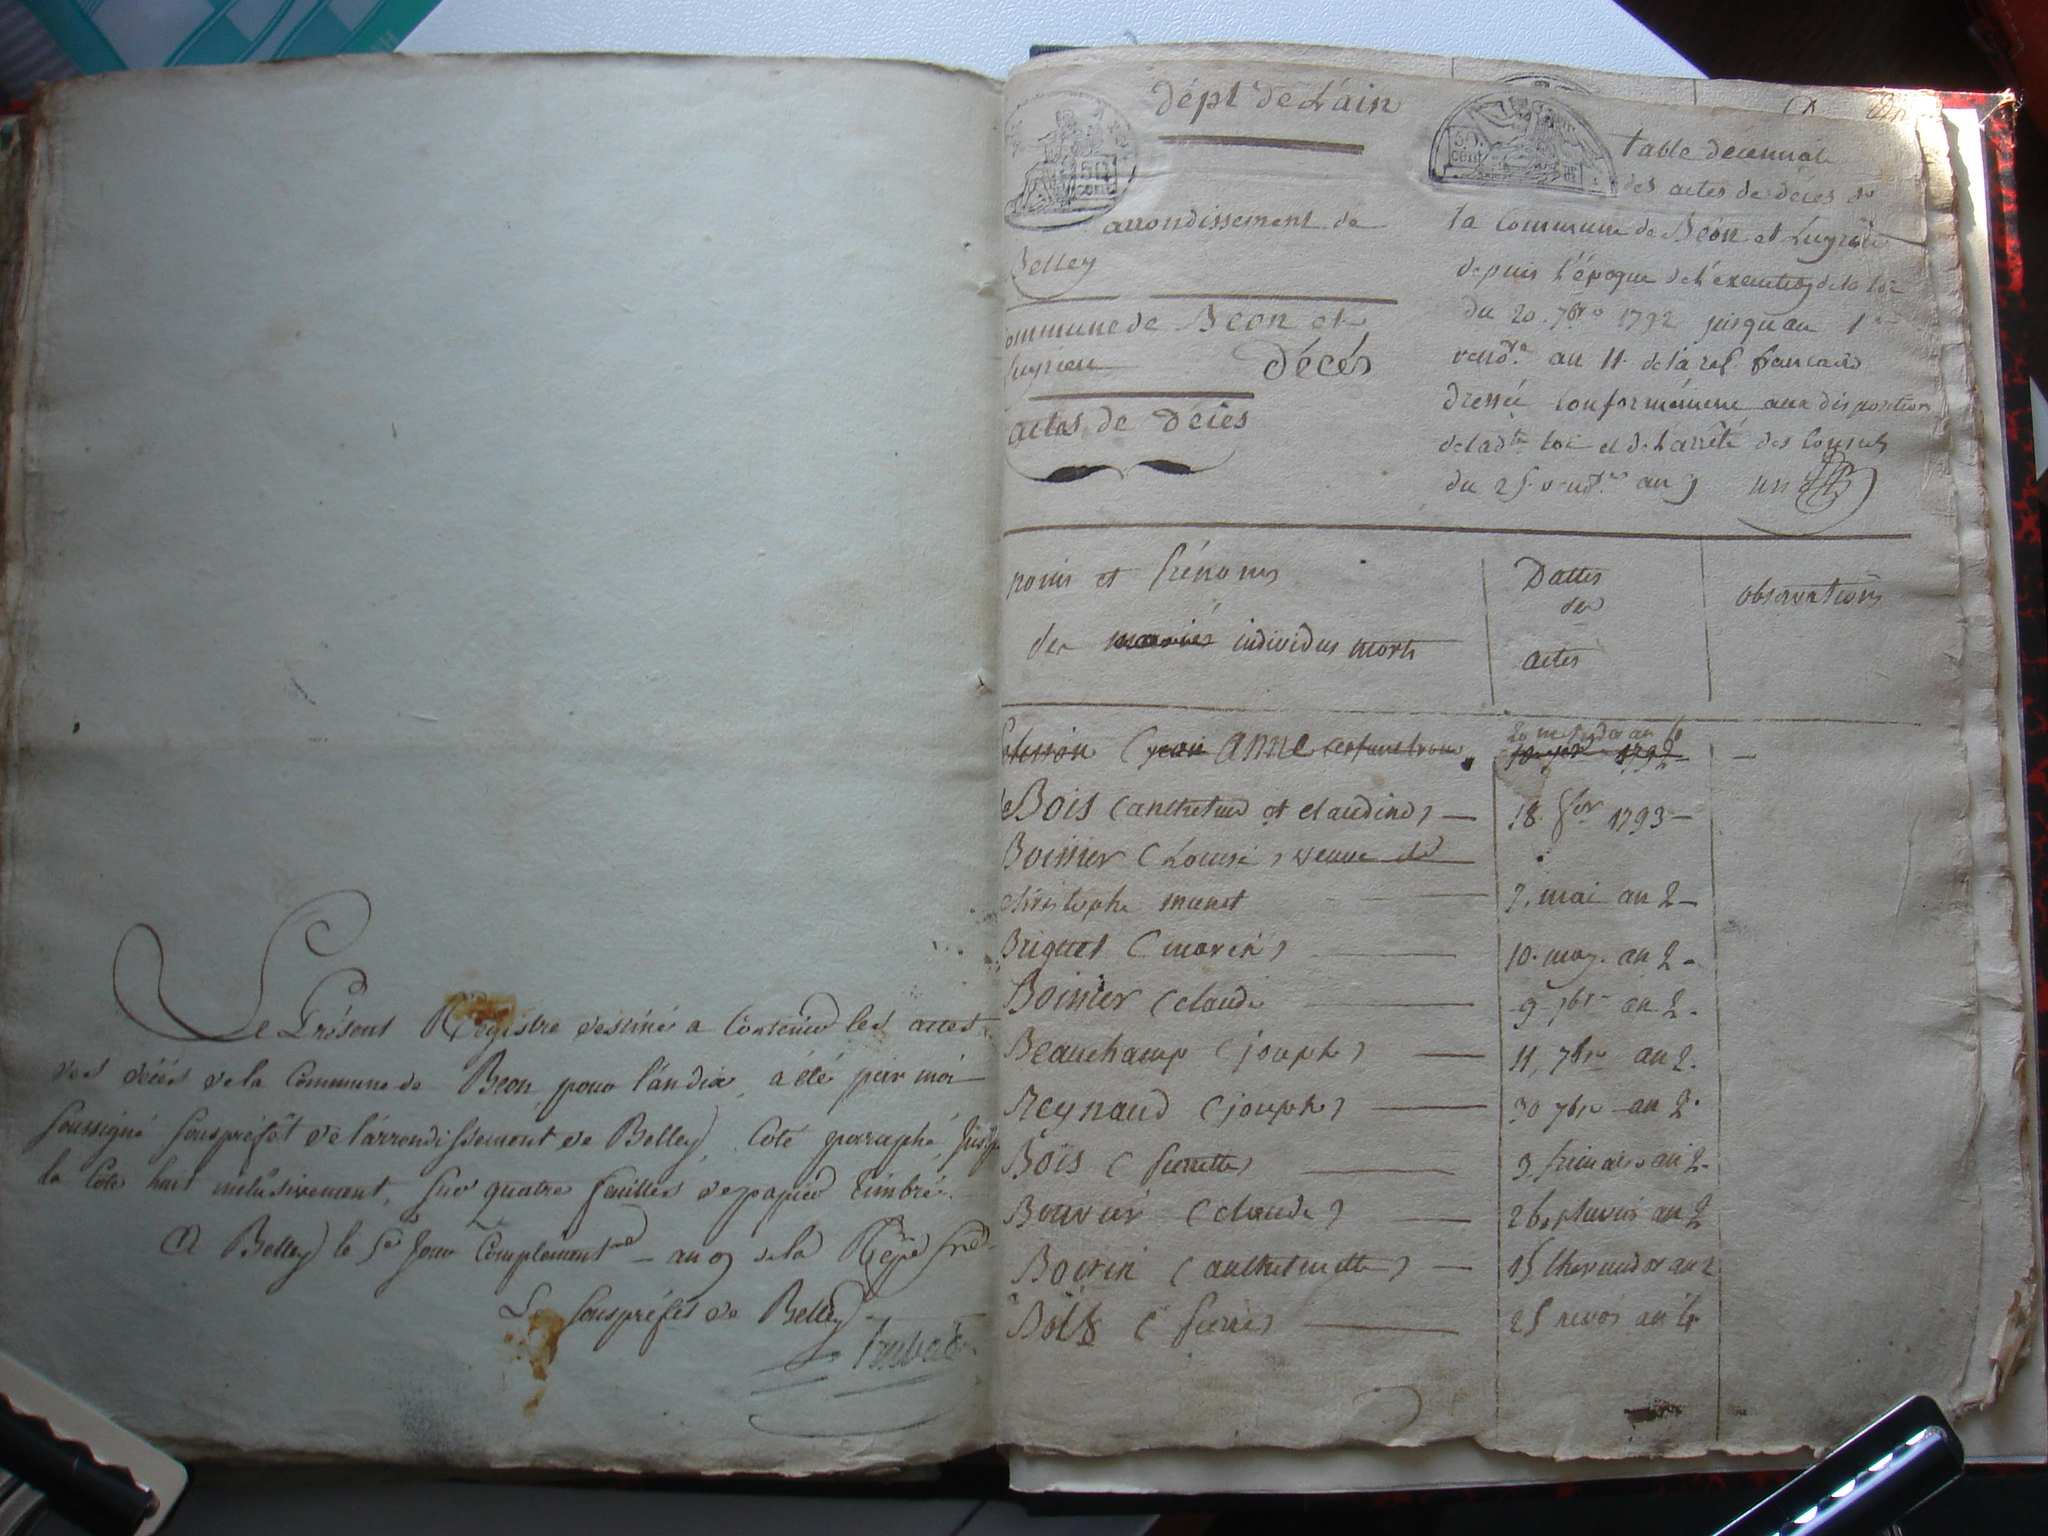 Le Présent Registre destiné a Contenir les actes
des décès de la Commune de Beon, pour l'an dix, a été par moi
soussigné souspréfet de l'arrondissement de Belley, Coté paraphé,
la Cote huit inclusivement, sur quatre feuilles de papier timbré.
A Belley le 5e Jour Complément.re an 9 de la Répe frse
Le souspréfet de Belley
dépt de L'ain
50 cent
arrondissement de
Belley
Commune de Beon et
Luyrieu décés
actes de décès
50 cent
table décennale
des actes de décès de
la Commune de Béon et Luyrieu
depuis l'époque de l'exécution de la loi
du 20. 7bre 1792 jusqu'au 1er
vend.re an 11 de la rép. française
dressée conformément aux dispositions
de la dte loi et de l'arrêté des Consuls
du 25. vend.re an 9 un
noms et Prénoms
des mariés individus morts
Dattes
des
actes
observations
anne
20 messidor an
10 1792
de Bois (anthelme et claudine) 18. 1793
Boinier (Louise) veuve de
christophe munet 7. mai an 2
Briguet (marin) 10. may. an 2
Boinier (claude 9 7bre an 2
Beauchamp (joseph) 11, 7bre an 2.
Reynaud (joseph) 30 7bre an 2.
Bois (Pierrette) 3 frimaire an 2
Bouvier (claude) 26 pluvios an 2
Boirin (anthelmette) 15 thermidor an 2
Bois (Pierre) 25 nivos an 4